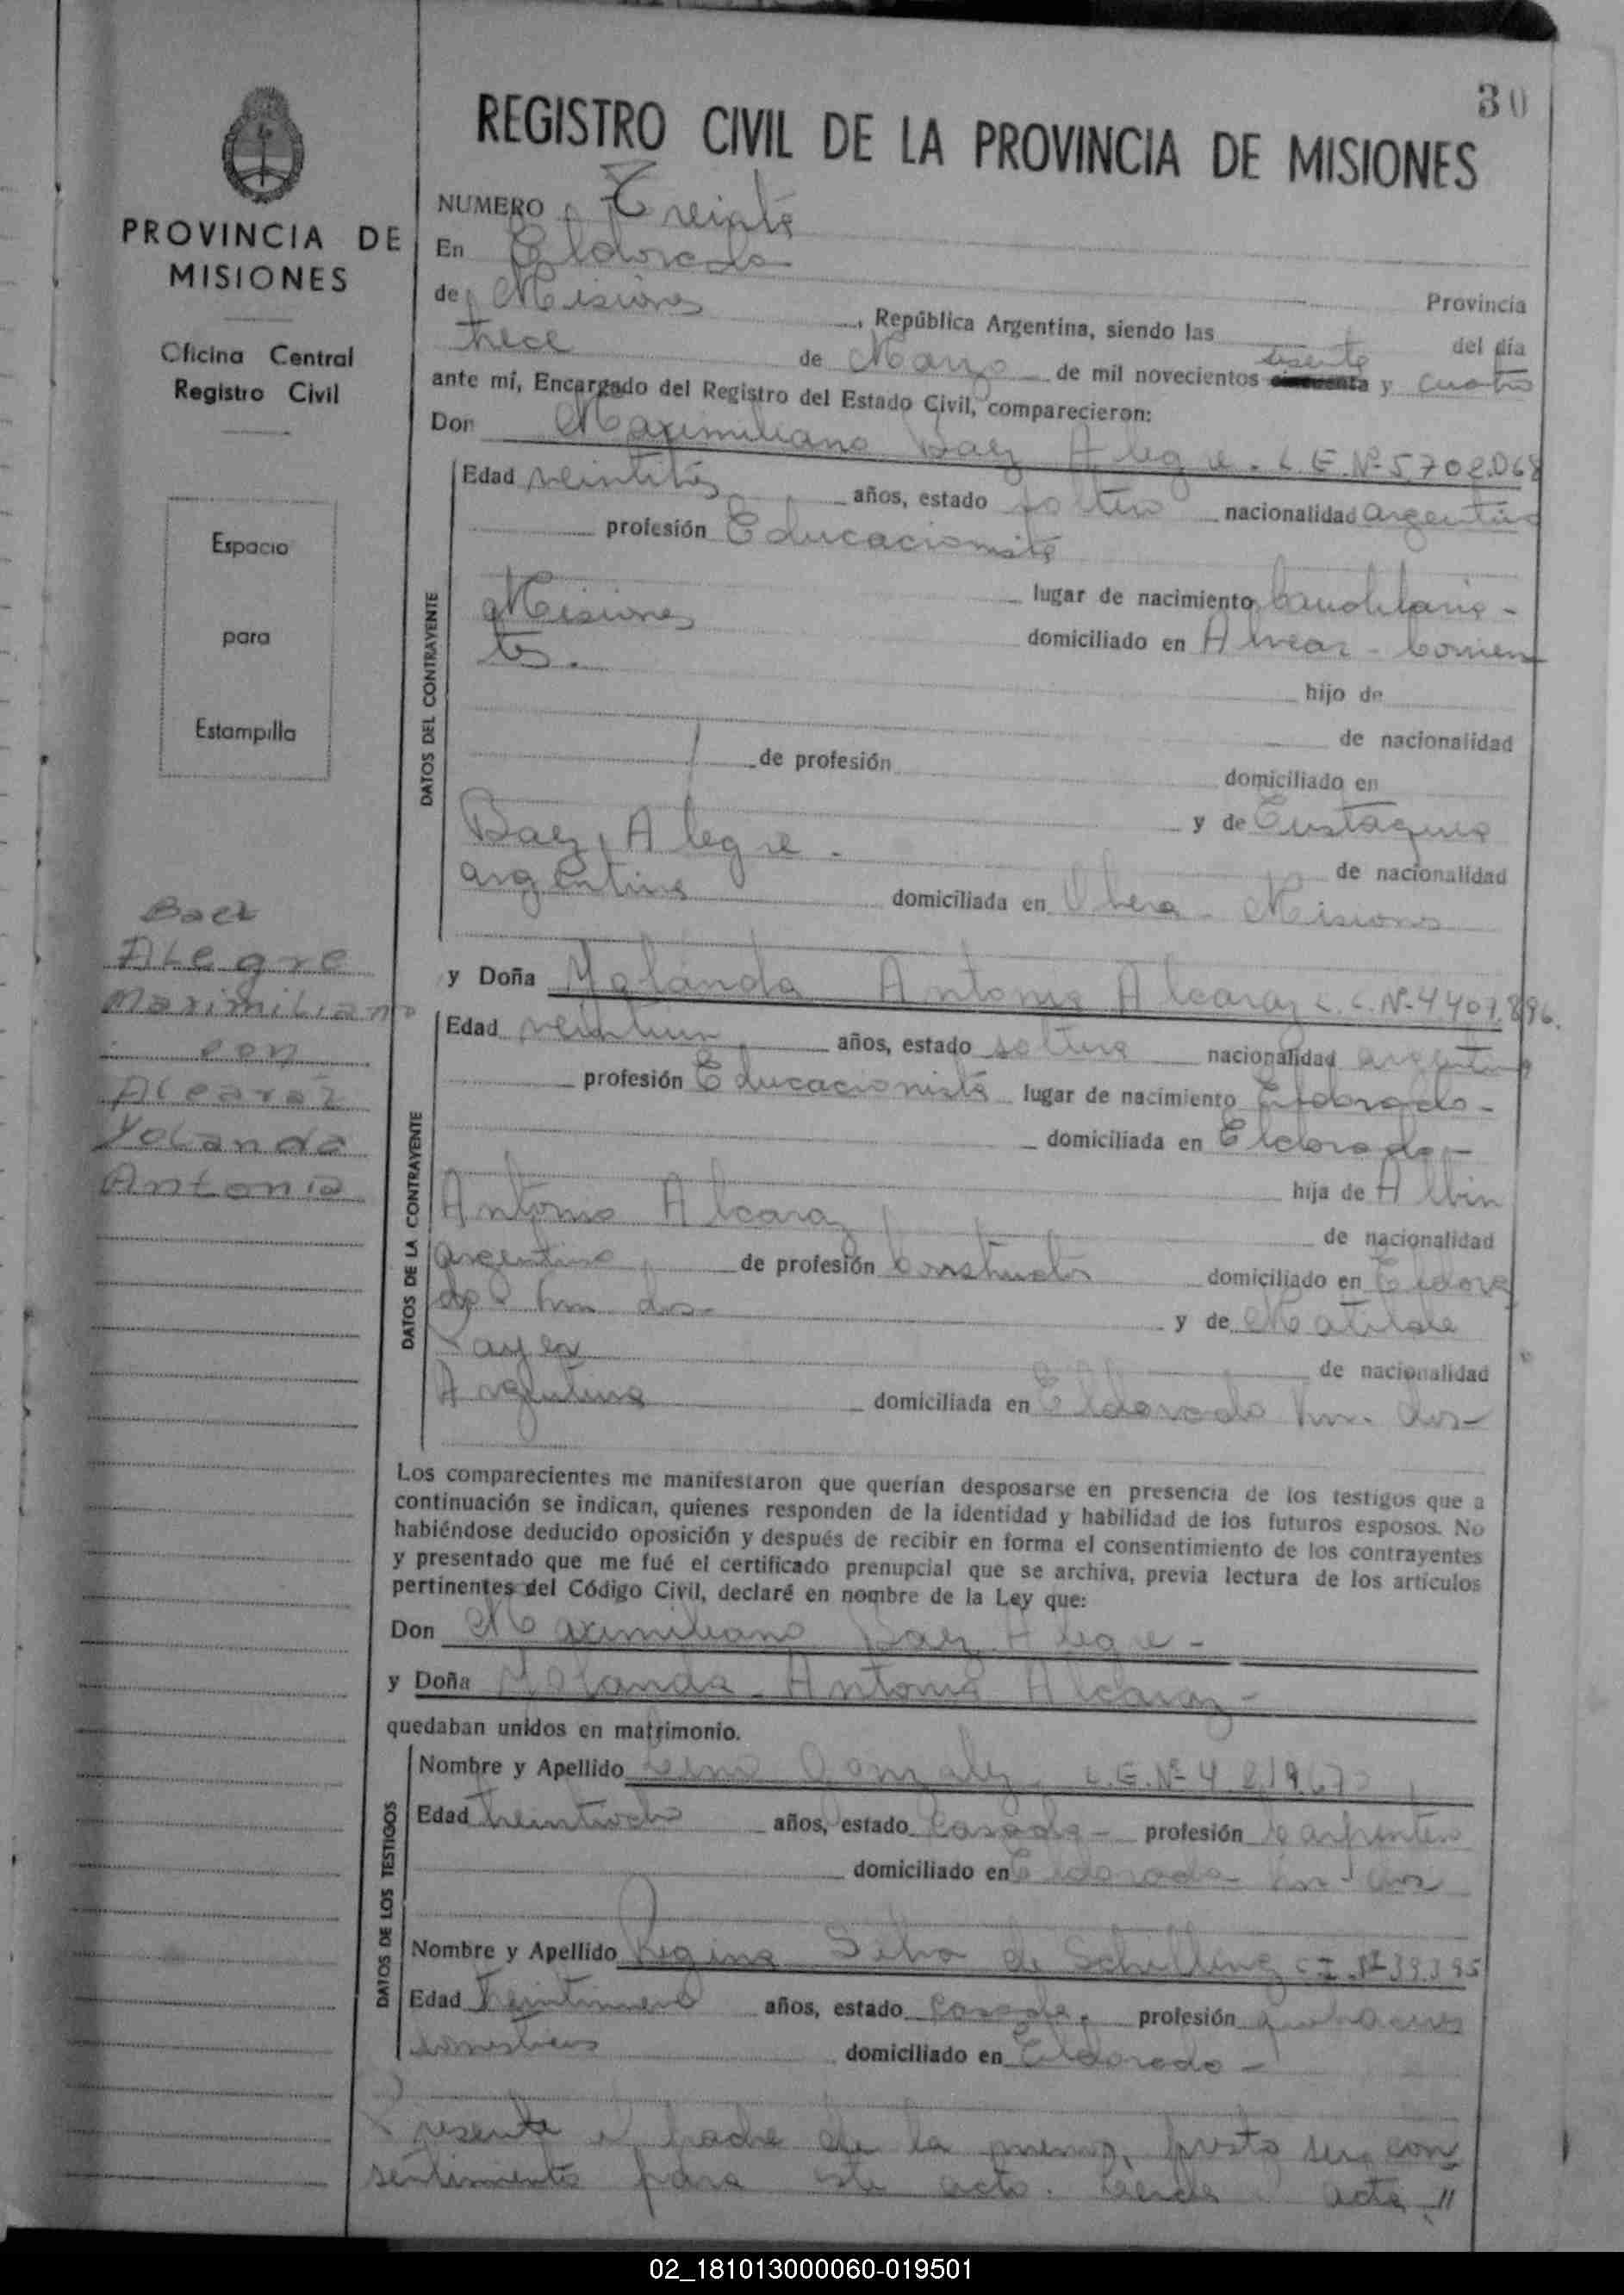 30
REGISTRO CIVIL DE LA PROVINCIA DE MISIONES
PROVINCIA DE
MISIONES
Oficina Central
Registro Civil
Espacio
para
Estampilla
Baez
Alegre
Maximiliano
con
Alcaraz
Yolanda
Antonia
NUMERO Treinta
En Eldorado
Provincia
de Misiones, República Argentina, siendo las del día
trece de Marzo de mil novecientos sesenta y cuatro
ante mí, Encargado del Registro del Estado Civil, comparecieron:
Don Maximiliano Baez Alegre. L.E.Nº 5702068
DATOS DEL CONTRAYENTE
Edad veintitrés años, estado soltero nacionalidad argentino
profesión Educacionista
lugar de nacimiento Candelaria -
Misiones domiciliado en Alvear - Corrien
tes.
hijo de
de nacionalidad
de profesión domiciliado en
y de Eustaquia
Baez Alegre. de nacionalidad
argentina domiciliada en Obera - Misiones
y Doña Yolanda Antonia Alcaraz L.C.Nº 4407.896.
DATOS DE LA CONTRAYENTE
Edad veintiun años, estado soltera nacionalidad argentina
profesión Educacionista lugar de nacimiento Eldorado -
domiciliada en Eldorado -
hija de Albin
Antonio Alcaraz de nacionalidad
argentino de profesión Constructor domiciliado en Eldora
do km dos - y de Matilde
de nacionalidad
Argentina domiciliada en Eldorado km. dos -
Los comparecientes me manifestaron que querían desposarse en presencia de los testigos que a
continuación se indican, quienes responden de la identidad y habilidad de los futuros esposos. No
habiéndose deducido oposición y después de recibir en forma el consentimiento de los contrayentes
y presentado que me fué el certificado prenupcial que se archiva, previa lectura de los artículos
pertinentes del Código Civil, declaré en nombre de la Ley que:
Don Maximiliano Baez Alegre -
y Doña Yolanda Antonia Alcaraz -
quedaban unidos en matrimonio.
DATOS DE LOS TESTIGOS
Nombre y Apellido Gonzalez L.E.Nº
Edad treintiocho años, estado Casado - profesión Carpintero
domiciliado en Eldorado km dos
Nombre y Apellido Regina Silva de Schilling C.I.Nº 39395
Edad años, estado casada, profesión quehaceres
domésticos domiciliado en Eldorado -
Presente el padre de la menor, presta su con
sentimiento para este acto. Leida acta "
02_181013000060-019501